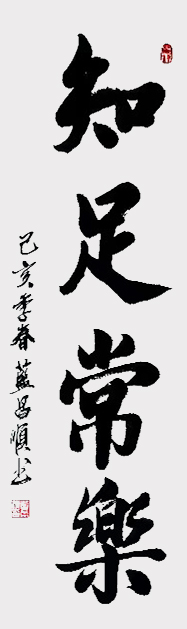 知足常樂
己亥季春藍昌順书